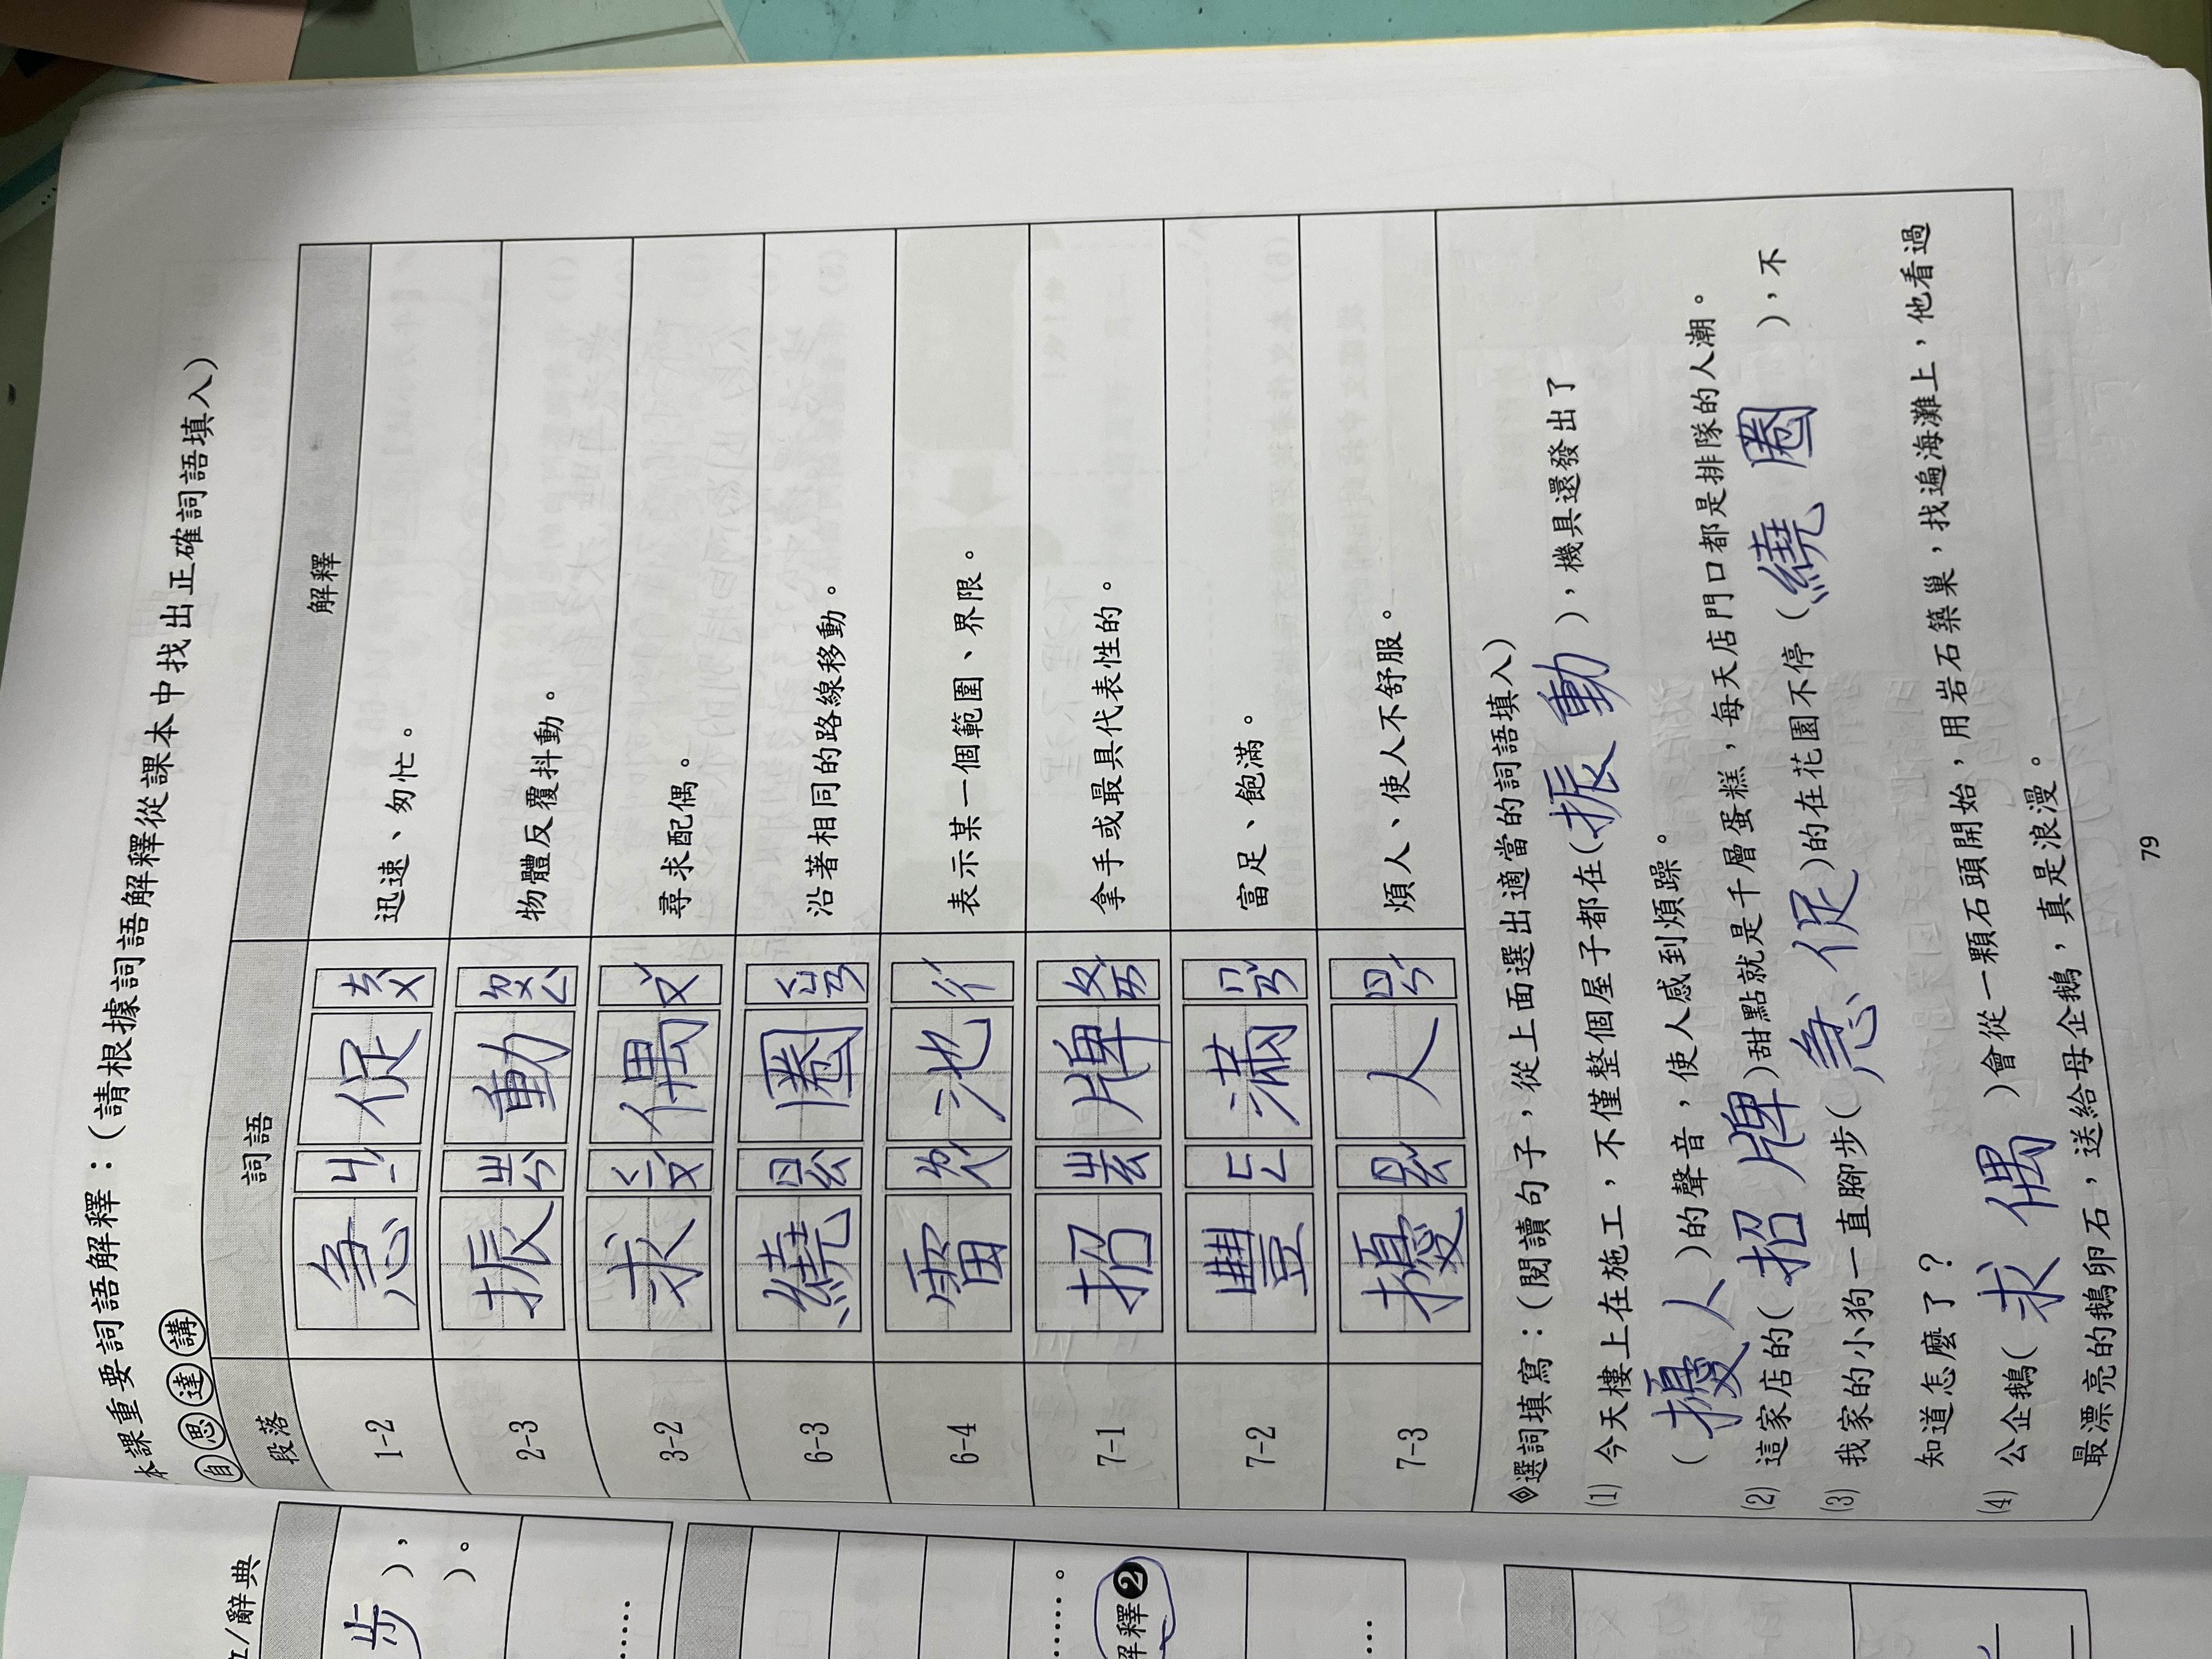 本課重要詞語解釋：（請根據詞語解釋從課本中找出正確詞語填入）
自思達講
段落 詞語 解釋
1-2 急ㄐㄧˊ促ㄘㄨˋ 迅速、匆忙。
2-3 振ㄓㄣˋ動ㄉㄨㄥˋ 物體反覆抖動。
3-2 求偶 尋求配偶。
6-3 繞圈 沿著相同的路線移動。
6-4 雷池 表示某一個範圍、界限。
7-1 招牌 拿手或最具代表性的。
7-2 豐滿 富足、飽滿。
7-3 擾人 煩人、使人不舒服。
◈選詞填寫：（閱讀句子，從上面選出適當的詞語填入）
(1) 今天樓上在施工，不僅整個屋子都在（振動），機具還發出了
（擾人）的聲音，使人感到煩躁。
(2) 這家店的（招牌）甜點就是千層蛋糕，每天店門口都是排隊的人潮。
(3) 我家的小狗一直腳步（急促）的在花園不停（繞圈），不
知道怎麼了？
(4) 公企鵝（求偶）會從一顆石頭開始，用岩石築巢，找遍海灘上，他看過
最漂亮的鵝卵石，送給母企鵝，真是浪漫。
79
/辭典
步），
）。
……
……。
解釋❷
…